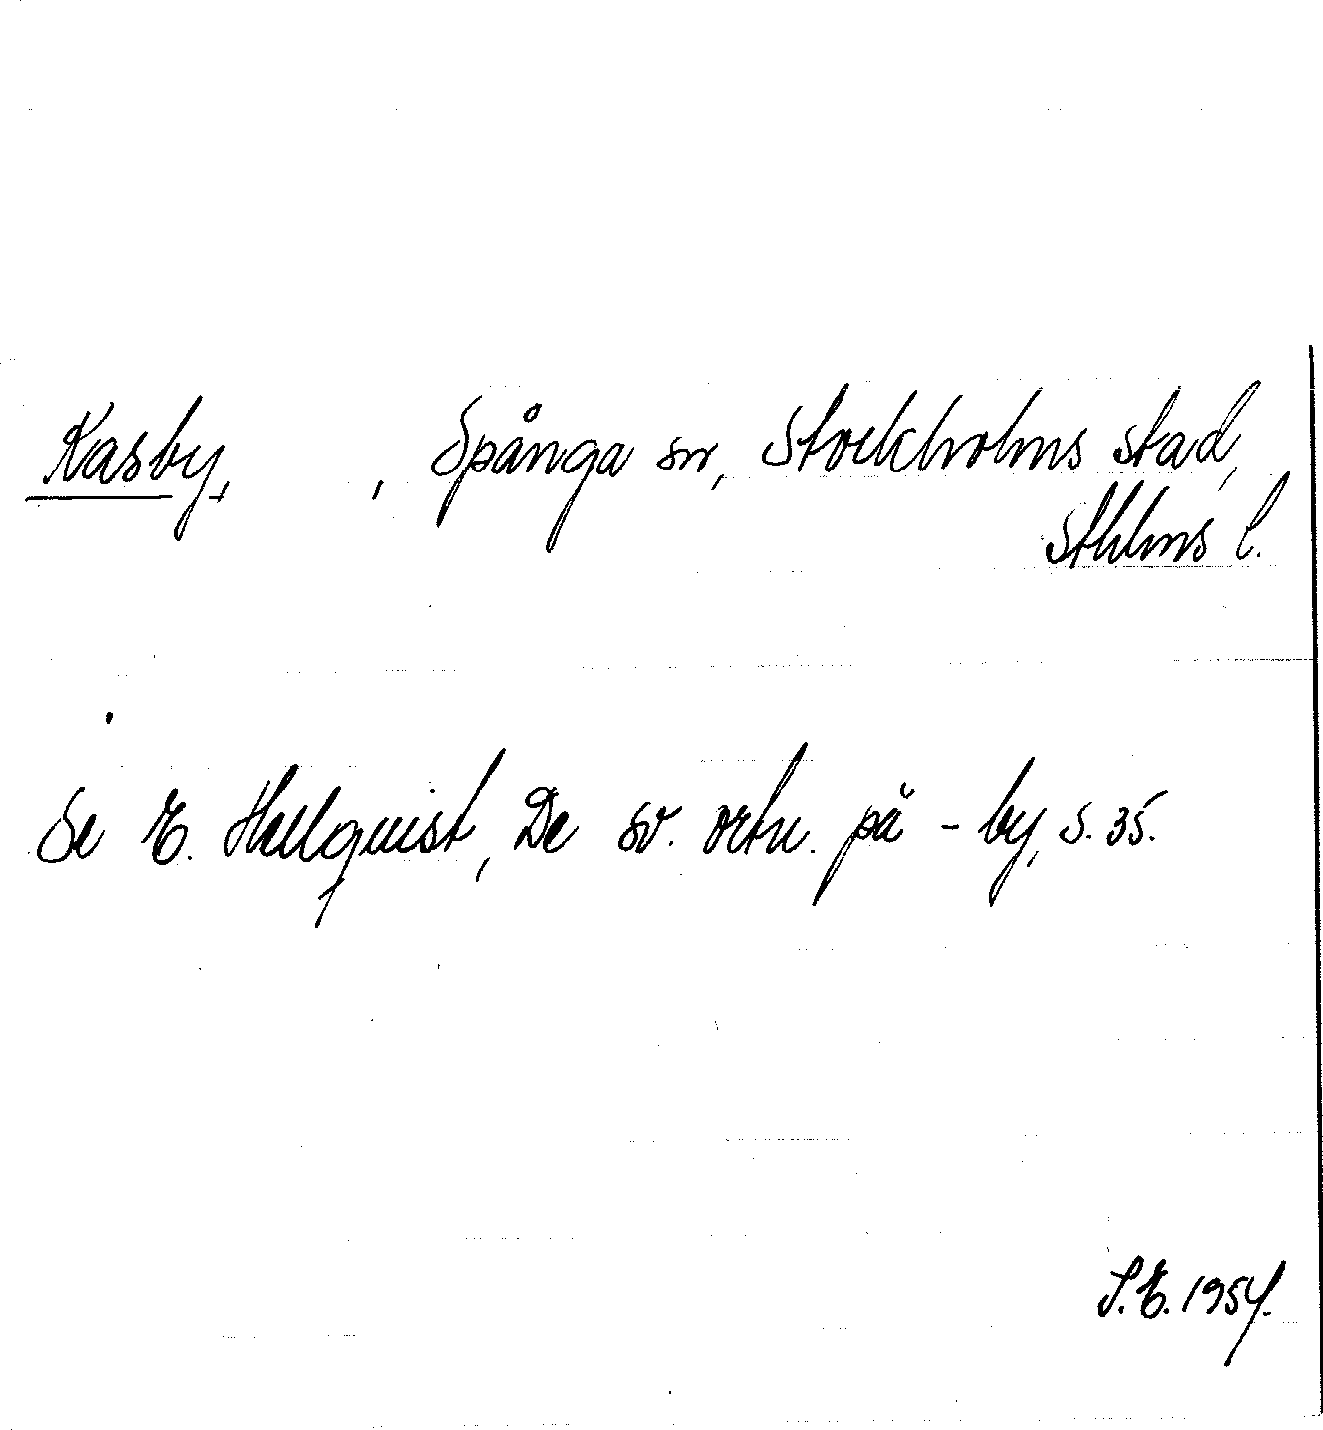 Kasby, , Spånga sn, Stockholms stad,
Sthlms l.
Se E. Hellquist, De sv. ortn. på -by, s. 35.
S.E. 1954.